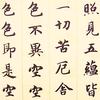 照見五蘊皆
一切苦厄舍
色不異空空
色即是空空